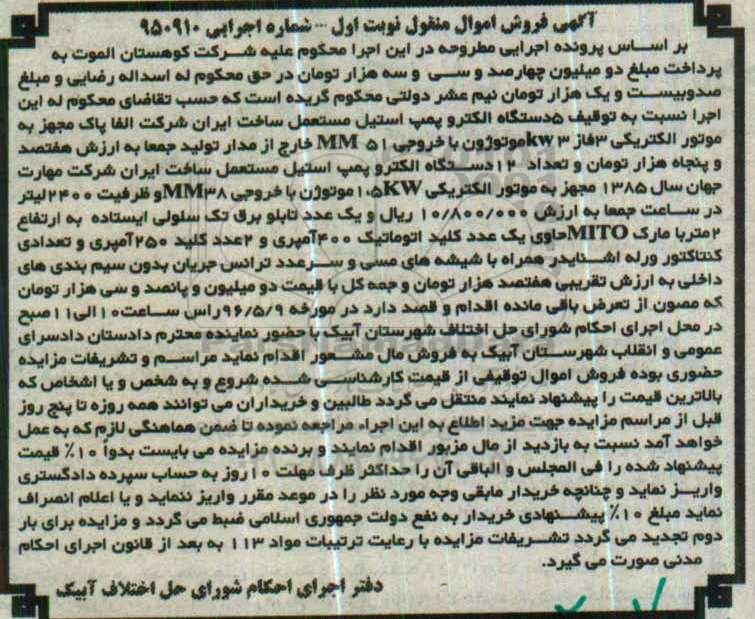 آگهی فروش اموال منقول نوبت اول --- شماره اجرایی ۹۵۰۹۱۰
بر اساس پرونده اجرایی مطروحه در این اجرا محکوم علیه شرکت کوهستان الموت به
پرداخت مبلغ دو میلیون چهارصد و سی و سه هزار تومان در حق محکوم له اسداله رضایی و مبلغ
صدوبیست و یک هزار تومان نیم عشر دولتی محکوم گریده است که حسب تقاضای محکوم له این
اجرا نسبت به توقیف ۵دستگاه الکترو پمپ استیل مستعمل ساخت ایران شرکت الفا پاک مجهز به
موتور الکتریکی ۳فاز ۳ kwموتوژون با خروجی ۵۱ MM خارج از مدار تولید جمعا به ارزش هفتصد
و پنجاه هزار تومان و تعداد ۱۲دستگاه الکترو پمپ استیل مستعمل ساخت ایران شرکت مهارت
جهان سال ۱۳۸۵ مجهز به موتور الکتریکی ۱،۵KWموتوژن با خروجی MM۳۸و ظرفیت ۲۴۰۰لیتر
در ساعت جمعا به ارزش ۱۰/۸۰۰/۰۰۰ ریال و یک عدد تابلو برق تک سلولی ایستاده به ارتفاع
۲متربا مارک MITOحاوی یک عدد کلید اتوماتیک ۴۰۰آمپری و ۲عدد کلید ۲۵۰آمپری و تعدادی
کنتاکتور ورله اشنایدر همراه با شیشه های مسی و سرعدد ترانس جریان بدون سیم بندی های
داخلی به ارزش تقریبی هفتصد هزار تومان و جمه کل با قیمت دو میلیون و پانصد و سی هزار تومان
که مصون از تعرض باقی مانده اقدام و قصد دارد در مورخه ۹۶/۵/۹راس ساعت۱۰الی۱۱صبح
در محل اجرای احکام شورای حل اختلاف شهرستان آبیک با حضور نماینده محترم دادستان دادسرای
عمومی و انقلاب شهرستان آبیک به فروش مال مشعور اقدام نماید مراسم و تشریفات مزایده
حضوری بوده فروش اموال توقیفی از قیمت کارشناسی شده شروع و به شخص و یا اشخاص که
بالاترین قیمت را پیشنهاد نمایند منتقل می گردد طالبین و خریداران می توانند همه روزه تا پنج روز
قبل از مراسم مزایده جهت مزید اطلاع به این اجراء مراجعه نموده تا ضمن هماهنگی لازم که به عمل
خواهد آمد نسبت به بازدید از مال مزبور اقدام نمایند و برنده مزایده می بایست بدوا ۱۰٪ قیمت
پیشنهاد شده را فی المجلس و الباقی آن را حداکثر ظرف مهلت ۱۰روز به حساب سپرده دادگستری
واریز نماید و چنانچه خریدار مابقی وجه مورد نظر را در موعد مقرر واریز ننماید و یا اعلام انصراف
نماید مبلغ ۱۰٪ پیشنهادی خریدار به نفع دولت جمهوری اسلامی ضبط می گردد و مزایده برای بار
دوم تجدید می گردد تشریفات مزایده با رعایت ترتیبات مواد ۱۱۳ به بعد از قانون اجرای احکام
مدنی صورت می گیرد.
دفتر اجرای احکام شورای حل اختلاف آبیک